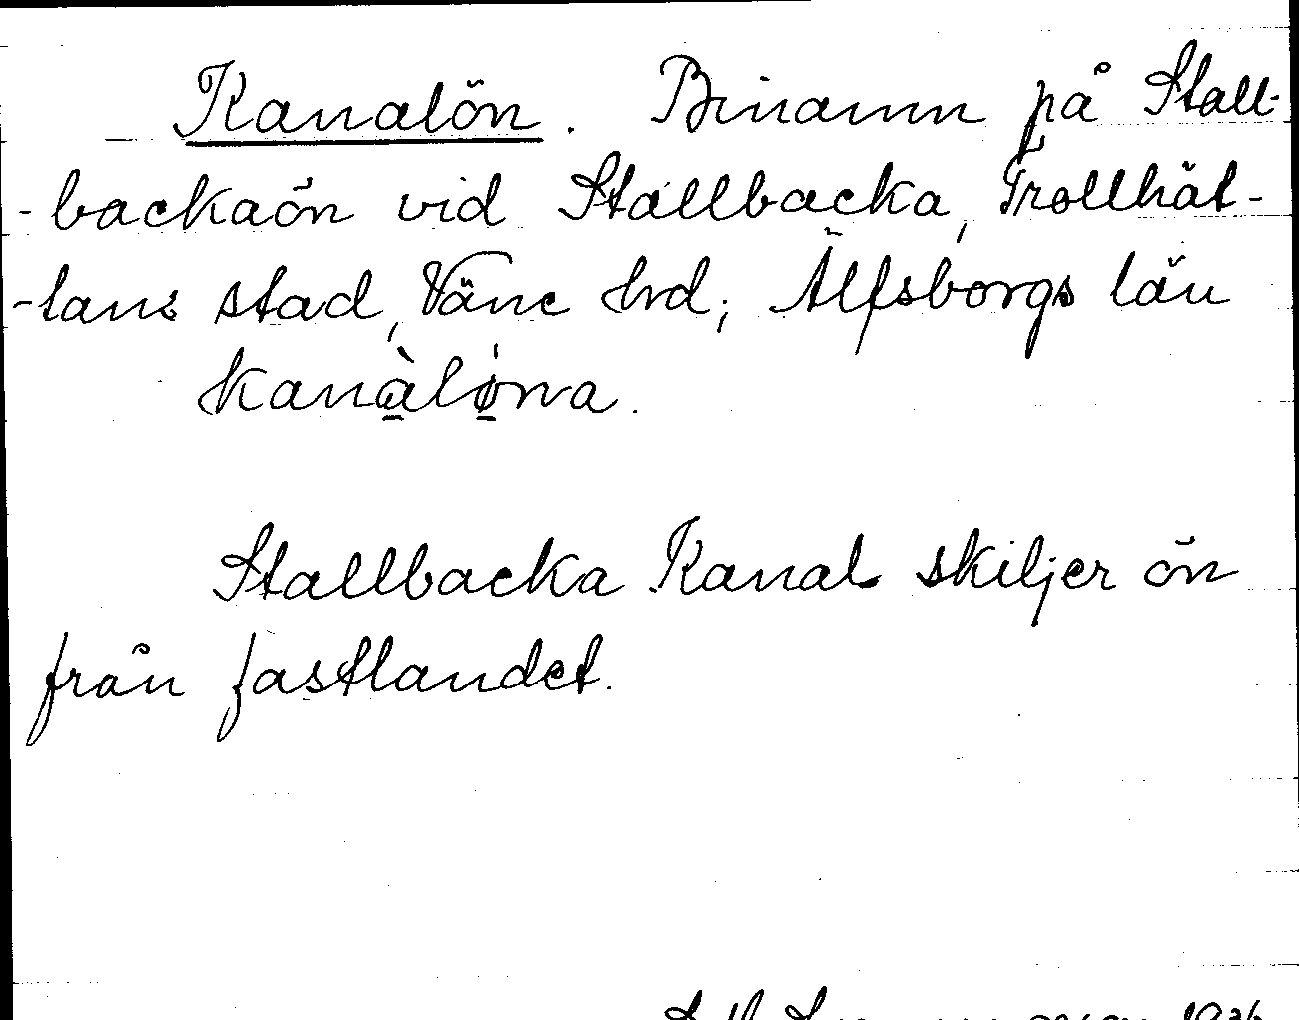 Kanalön. Binamn på Stall-
-backaön vid Stallbacka, Trollhät-
-tans stad, Väne hrd; Älfsborgs län
kanàløna.
Stallbacka Kanal skiljer ön
från fastlandet.